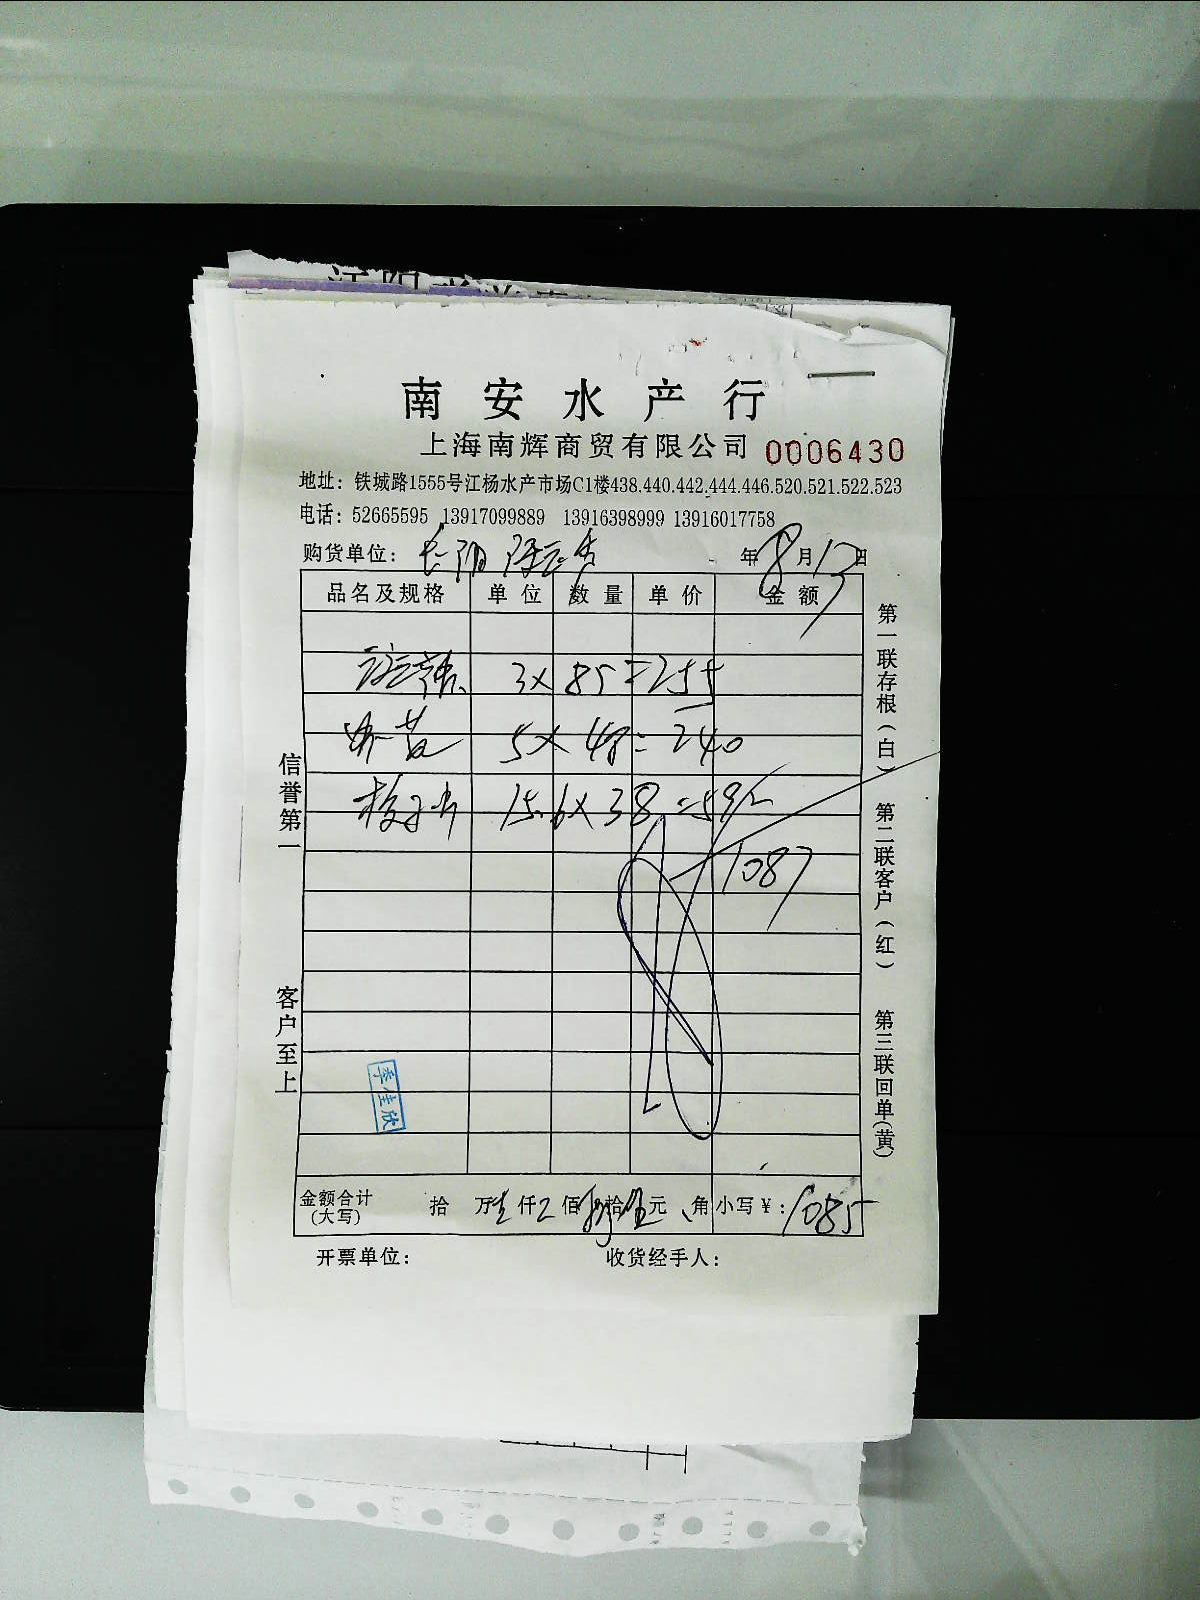 南安水产行
上海南辉商贸有限公司 0006430
地址：铁城路1555号江杨水产市场C1楼438.440.442.444.446.520.521.522.523
电话：52665595 13917099889 13916398999 13916017758
购货单位： 年8月17日
品名及规格 单位 数量 单价 金额
3×85=255
5×48=240
15.6×38=592
1087
金额合计 拾 万 仟 佰 拾 元 角 小写￥：1085
(大写)
开票单位： 收货经手人：
信誉第一
客户至上
第一联存根(白)
第二联客户(红)
第三联回单(黄)
李佳欣